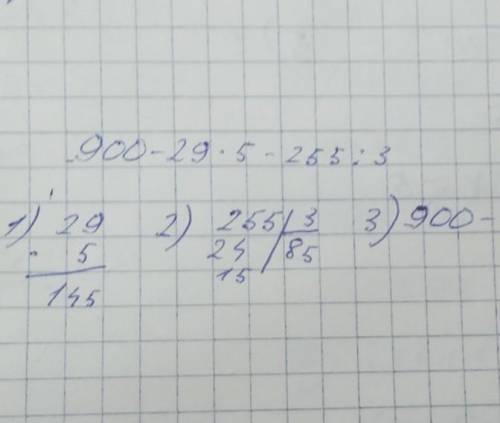 900 - 29 · 5 - 255 : 3
1) 29
· 5
145
2) 255 | 3
24 | 85
15
3) 900 -